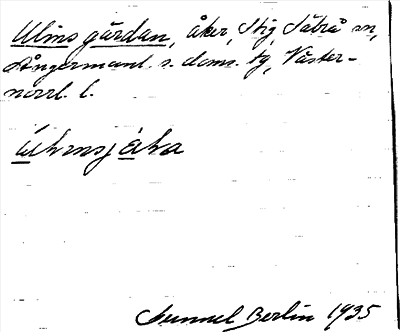 Ulins gårdan, åker, Stig, Säbrå sn,
Ångermanl. s. doms. tg, Väster-
norrl. l.
Gunnel Berlin 1935